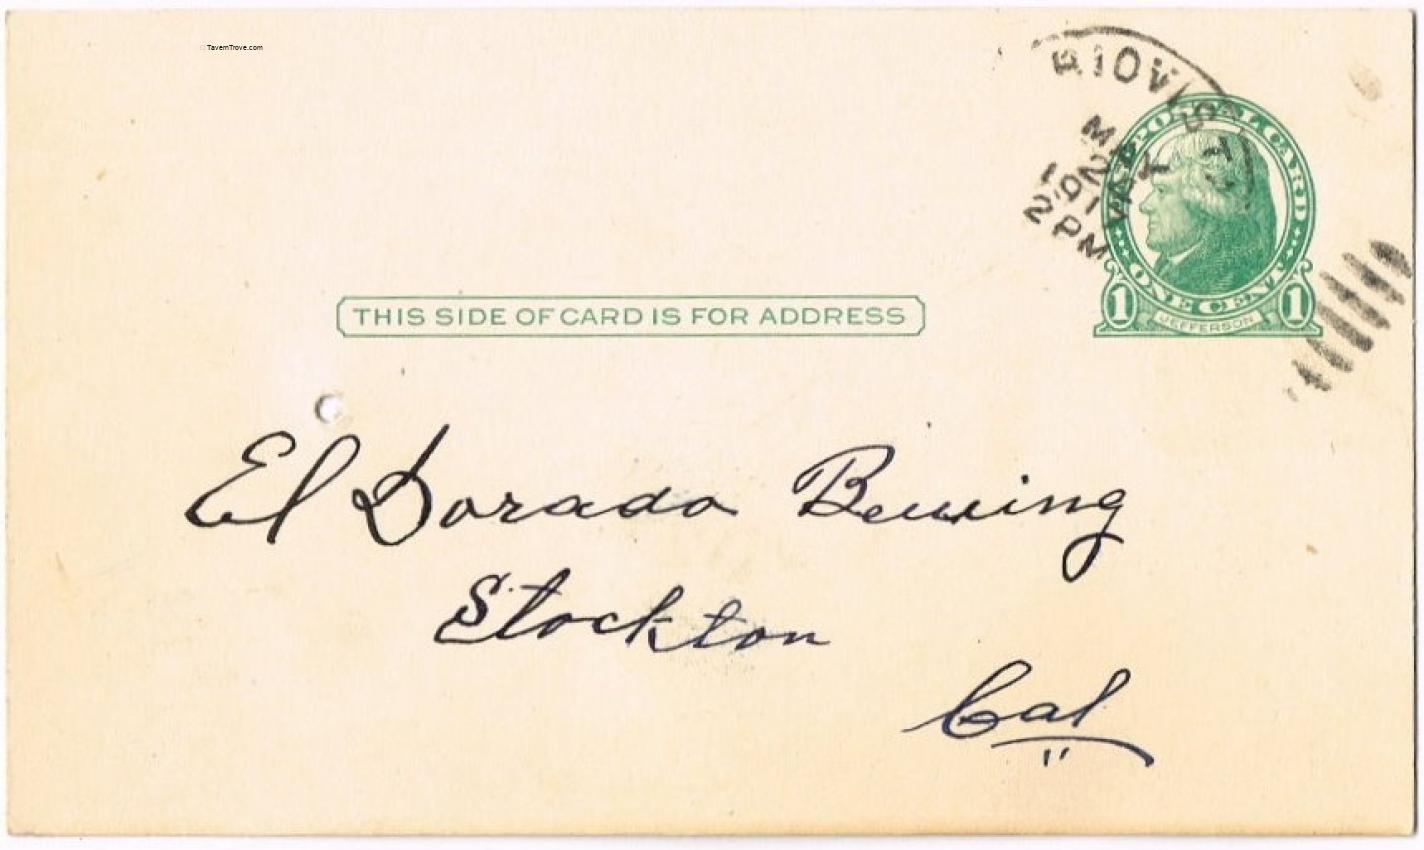 TavernTrove.com
RIO VIS
MAR
2 PM
POSTAL CARD
ONE CENT
1 JEFFERSON 1
THIS SIDE OF CARD IS FOR ADDRESS
El Dorado Brewing
Stockton
Cal